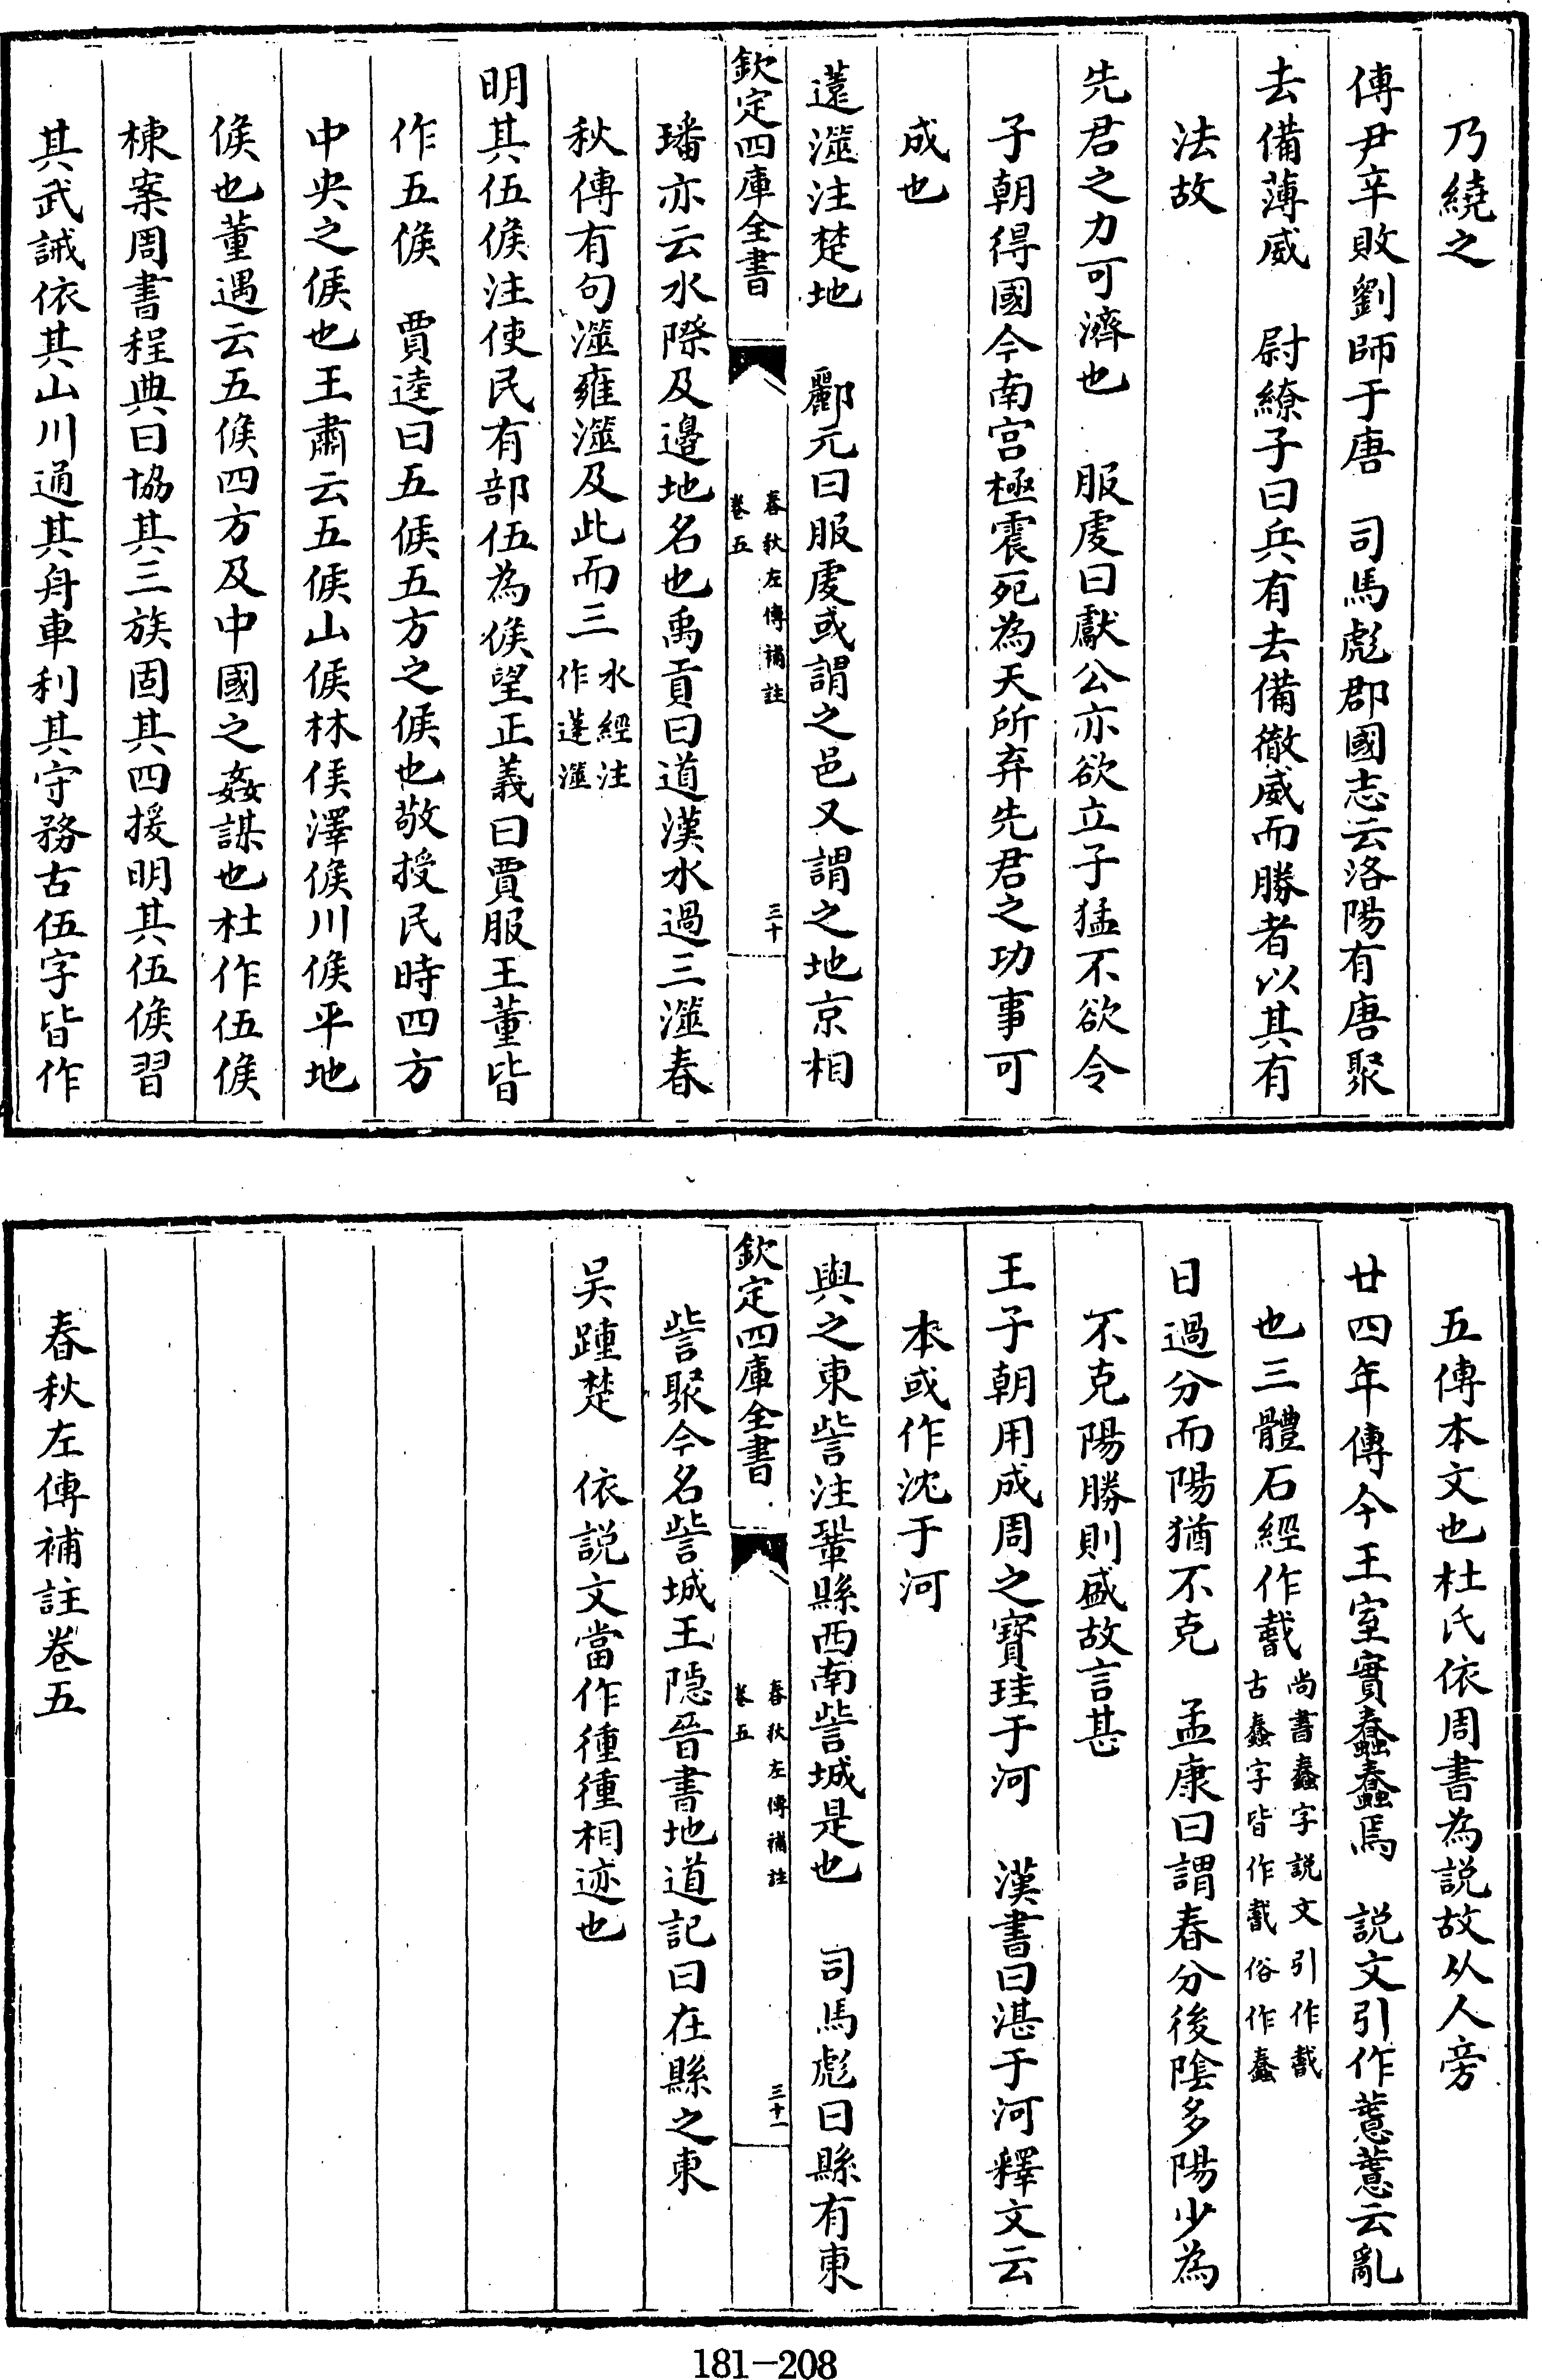 乃繞之
傳尹辛敗劉師于唐　司馬彪郡國志云洛陽有唐聚
去備薄威　尉繚子曰兵有去備徹威而勝者以其有
法故
先君之力可濟也　服䖍曰獻公亦欲立子猛不欲令
子朝得國今南宫極震死為天所弃先君之功事可
成也
薳澨注楚地　酈元曰服䖍或謂之邑又謂之地京相
欽定四庫全書
春秋左傳補註
卷五
三十
璠亦云水際及邉地名也禹貢曰道漢水過三澨春
秋傳有句澨雍澨及此而三水經注作薳澨
明其伍候注使民有部伍為候望正義曰賈服王董皆
作五候　賈逵曰五候五方之候也敬授民時四方
中央之候也王肅云五候山候林候澤候川候平地
候也董遇云五候四方及中國之姦謀也杜作伍候
棟案周書程典曰協其三族固其四援明其伍候習
其武誡依其山川通其舟車利其守務古伍字皆作
五傳本文也杜氏依周書為説故从人旁
廿四年傳今王室實蠢蠢焉　説文引作惷惷云亂
也三體石經作𢧵尚書蠢字説文引作𢧵古蠢字皆作𢧵俗作蠢
日過分而陽猶不克　孟康曰謂春分後陰多陽少為
不克陽勝則盛故言甚
王子朝用成周之寳珪于河　漢書曰湛于河釋文云
本或作沈于河
與之東訾注鞏縣西南訾城是也　司馬彪曰縣有東
欽定四庫全書
春秋左傳補註
卷五
三十一
訾聚今名訾城王隠晉書地道記曰在縣之東
吴踵楚　依説文當作歱歱相迹也
春秋左傳補註卷五
181-208